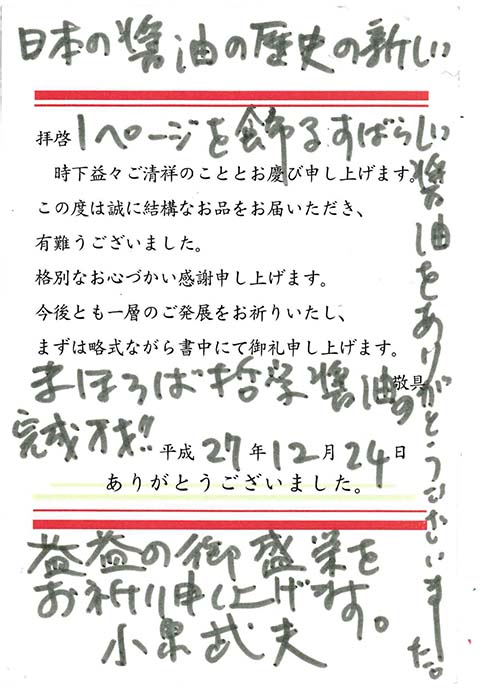 日本の醤油の歴史の新しい
拝啓 1ページを飾るすばらしい
醤油をありがとうございました。
時下益々ご清祥のこととお慶び申し上げます。
この度は誠に結構なお品をお届いただき、
有難うございました。
格別なお心づかい感謝申し上げます。
今後とも一層のご発展をお祈りいたし、
まずは略式ながら書中にて御礼申し上げます。
敬具
まほろば哲学醤油の
完成万才!!
平成27年12月24日
ありがとうございました。
益益の御盛栄を
お祈り申し上げます。
小泉武夫